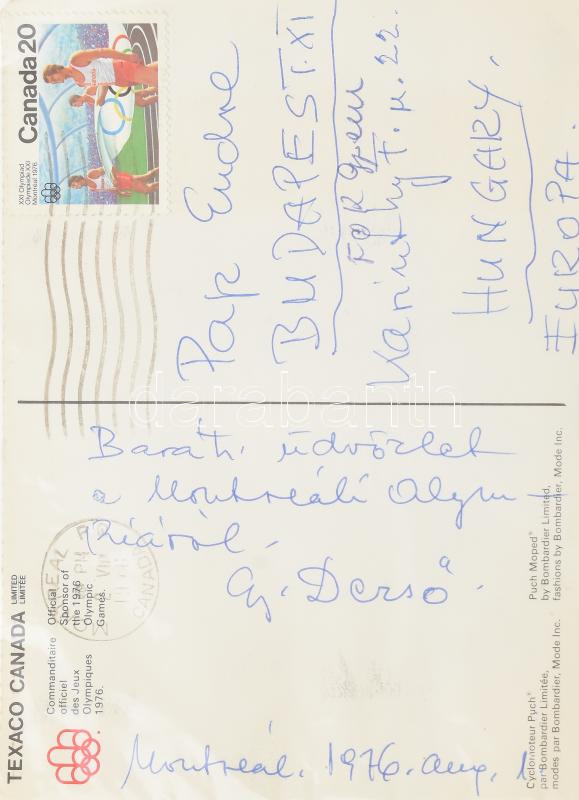 TEXACO CANADA LIMITED
LIMITÉE
Commanditaire
officiel
des Jeux
Olympiques
1976.
Official
Sponsor of
the 1976
Olympic
Games.
Canada 20
XXI Olympiad
Olympiade XXI
Montréal 1976
Baráti üdvözlet
a Montreáli Olym
piáról.
Gy. Dersö.
Montreál. 1976. aug. 1.
Pap Endre
BUDAPEST. XI
Karinthy F. u. 22.
HUNGARY.
EUROPA.
Cyclomoteur Puch®
par Bombardier Limitée,
modes par Bombardier, Mode Inc.
Puch Moped®
by Bombardier Limited,
fashions by Bombardier, Mode Inc.
CANADA
darabanth